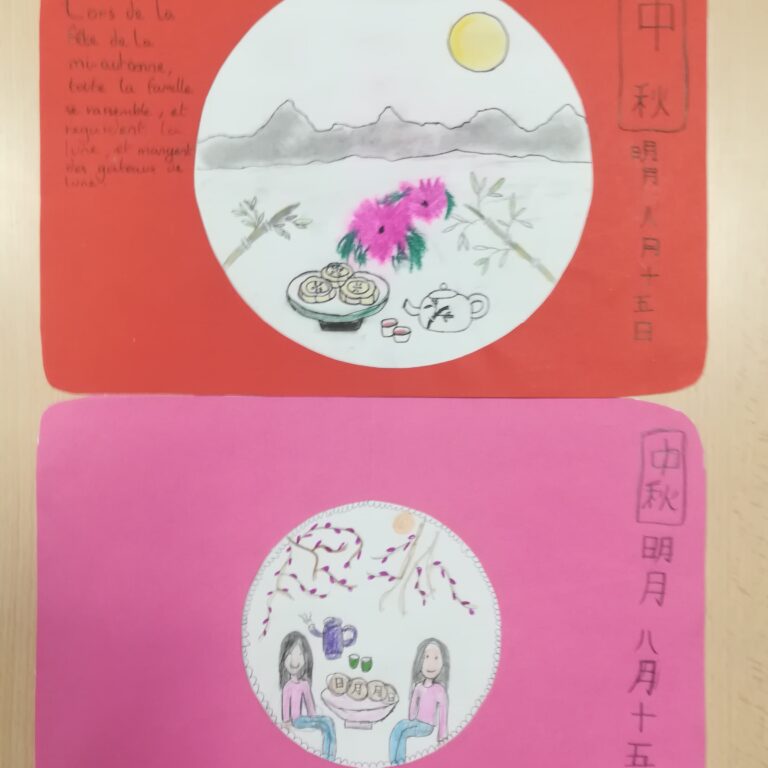 Lors de la
fête de la
mi-automne,
toute la famille
se rassemble, et
regardent la
lune, et mangent
des gâteaux de
lune.
中秋
明月 人月十五日
中秋
明月 八月十五
日月月